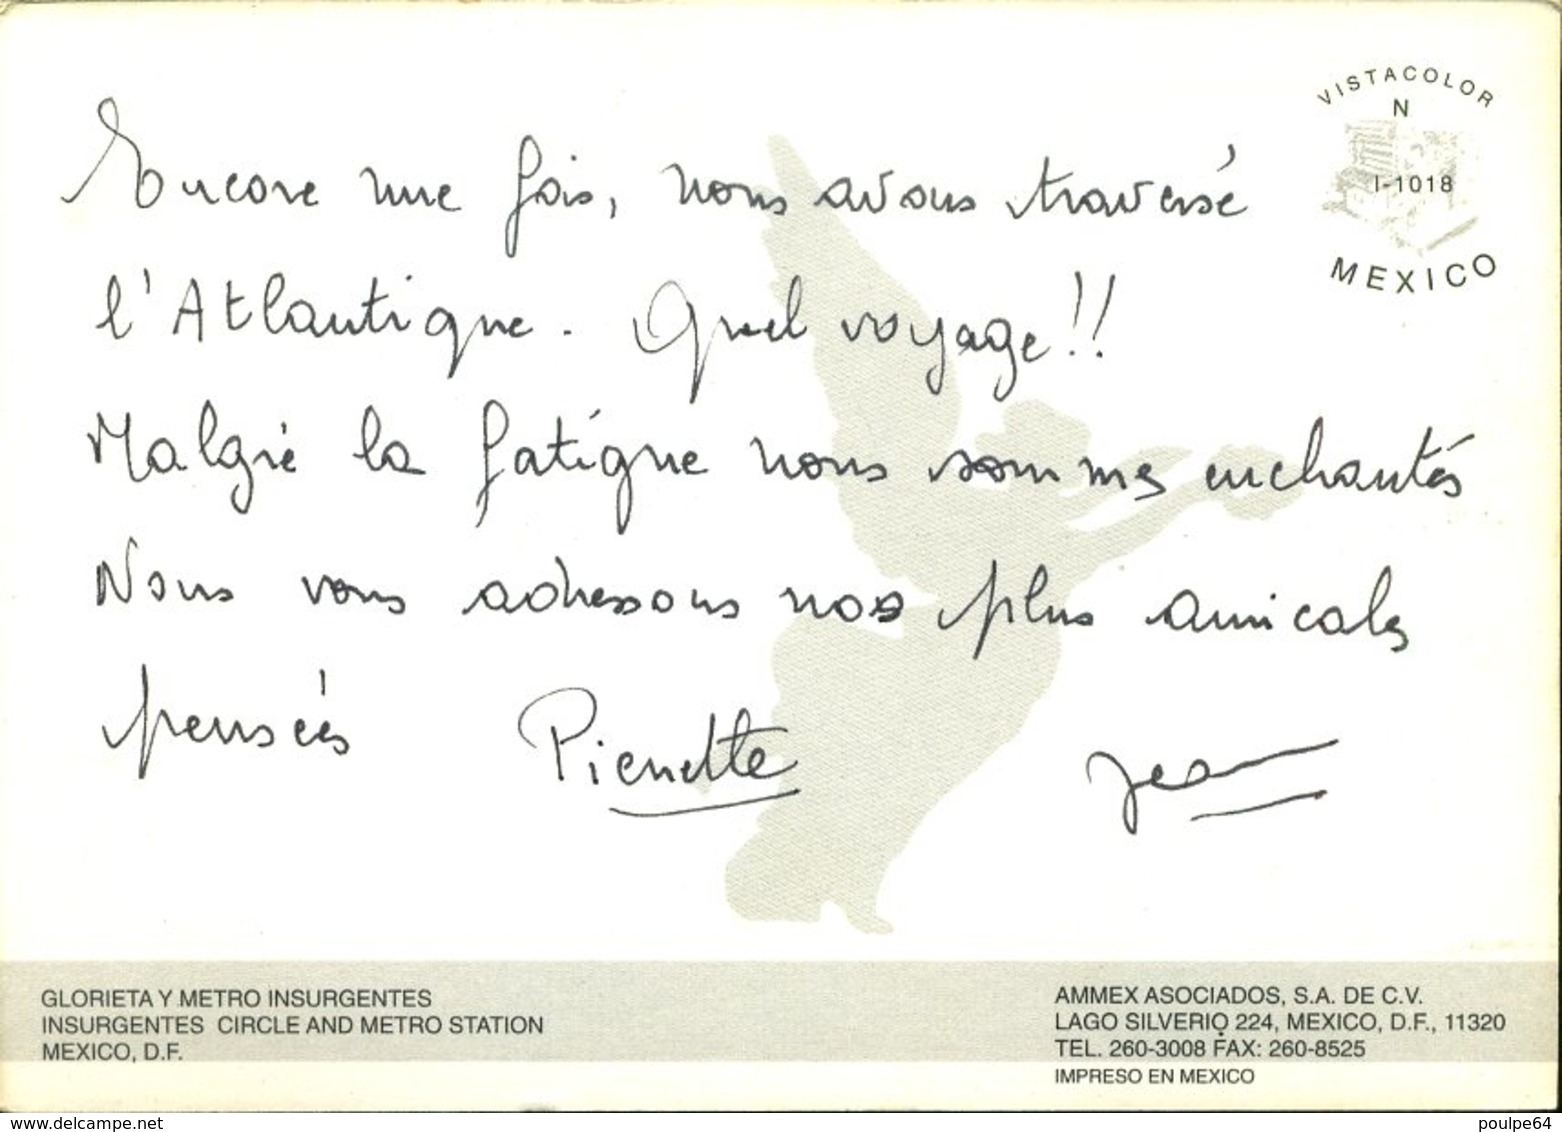 VISTACOLOR
N
I-1018
MEXICO
Encore une fois, nous avons traversé
l'Atlantique. Quel voyage!!
Malgré la fatigue nous sommes enchantés
Nous vous adressons nos plus amicales
pensées Pierrette Jean
GLORIETA Y METRO INSURGENTES
INSURGENTES CIRCLE AND METRO STATION
MEXICO, D.F.
AMMEX ASOCIADOS, S.A. DE C.V.
LAGO SILVERIO 224, MEXICO, D.F., 11320
TEL. 260-3008 FAX: 260-8525
IMPRESO EN MEXICO
www.delcampe.net
poulpe64